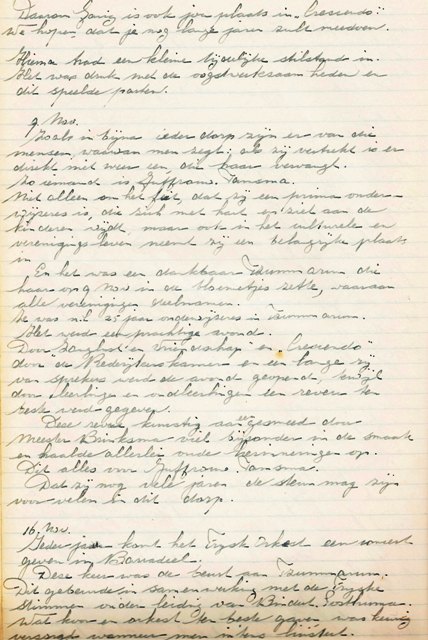 Daarom Gang is ook jou plaats in „Crescendo"
We hopen dat je nog lange jaren zult meedoen.
Hierna trad een kleine tijdelijke stilstand in.
Het was druk met de oogstwerkzaamheden en
dit speelde parten.
9 Nov.
Zoals in bijna ieder dorp zijn er van die
mensen, waarvan men zegt: als zij vertrekt is er
direkt niet weer een, die haar vervangt.
Zo iemand is Juffrouw Tansma.
Niet alleen om het feit, dat zij een prima onder-
wijzeres is, die zich met hart en ziel aan de
kinderen wijdt, maar ook in het culturele en
verenigingsleven neemt zij een belangrijke plaats
in.
En het was een dankbaar Tzummarum die
haar op 9 Nov in de bloemetjes zette, waaraan
alle verenigingen deelnamen.
Ze was n.l. 25 jaar onderwijzeres in Tzummarum.
Het werd een prachtige avond.
Door „Zanglust en Vriendschap" en „Crescendo"
door de Rederijkerskamer en een lange rij
van sprekers werd de avond gevuld, terwijl
door leerlingen en oudleerlingen een revue ten
beste werd gegeven.
Deze revue kunstig aaneengesmeed door
Meester Brinksma viel bijzonder in de smaak
en haalde allerlei oude herinneringen op.
Dit alles voor Juffrouw Tansma.
Dat zij nog vele jaren de steun mag zijn
voor velen in dit dorp.
16 Nov.
Ieder jaar komt het Frysk Orkest een concert
geven in Barradeel.
Deze keer was de beurt aan Tzummarum.
Dit gebeurde in samenwerking met de Fryske
stimmen onder leiding van
Wat koor en orkest ten beste gaven was
wanneer men